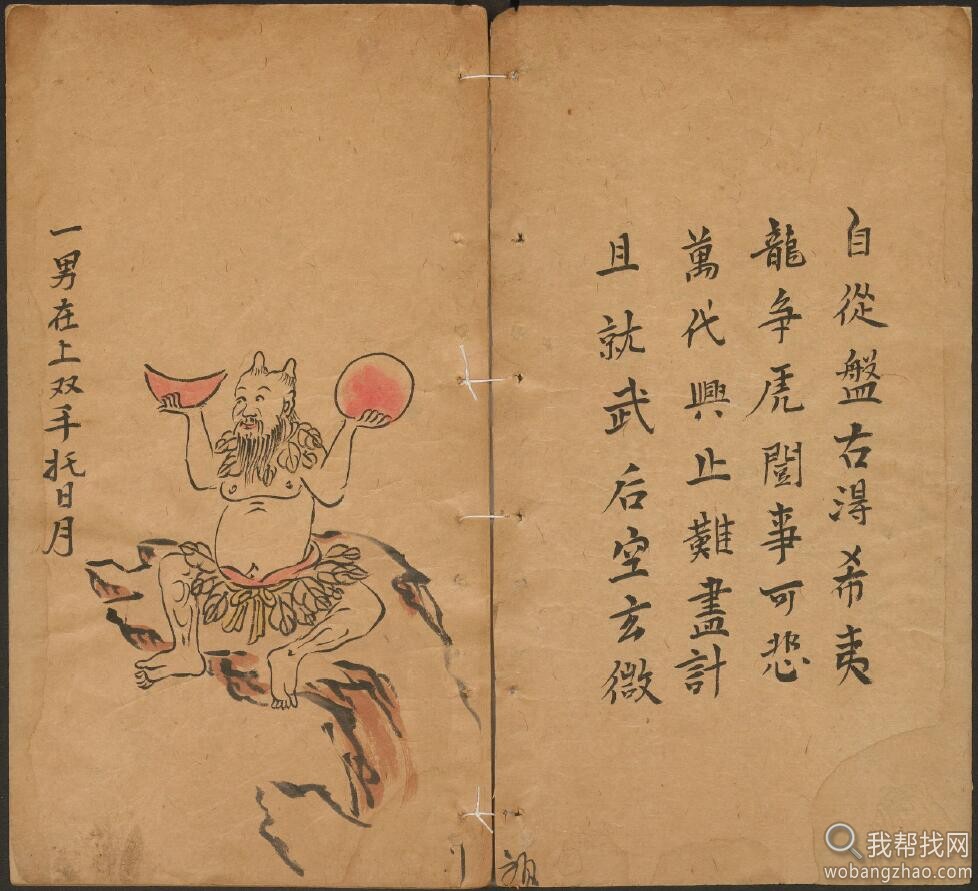 自從盤古淂希夷
龍爭虎鬪事可悲
萬代興止難盡計
且就武后空玄微
一男在上双手托日月
我帮找网
wobangzhao.com